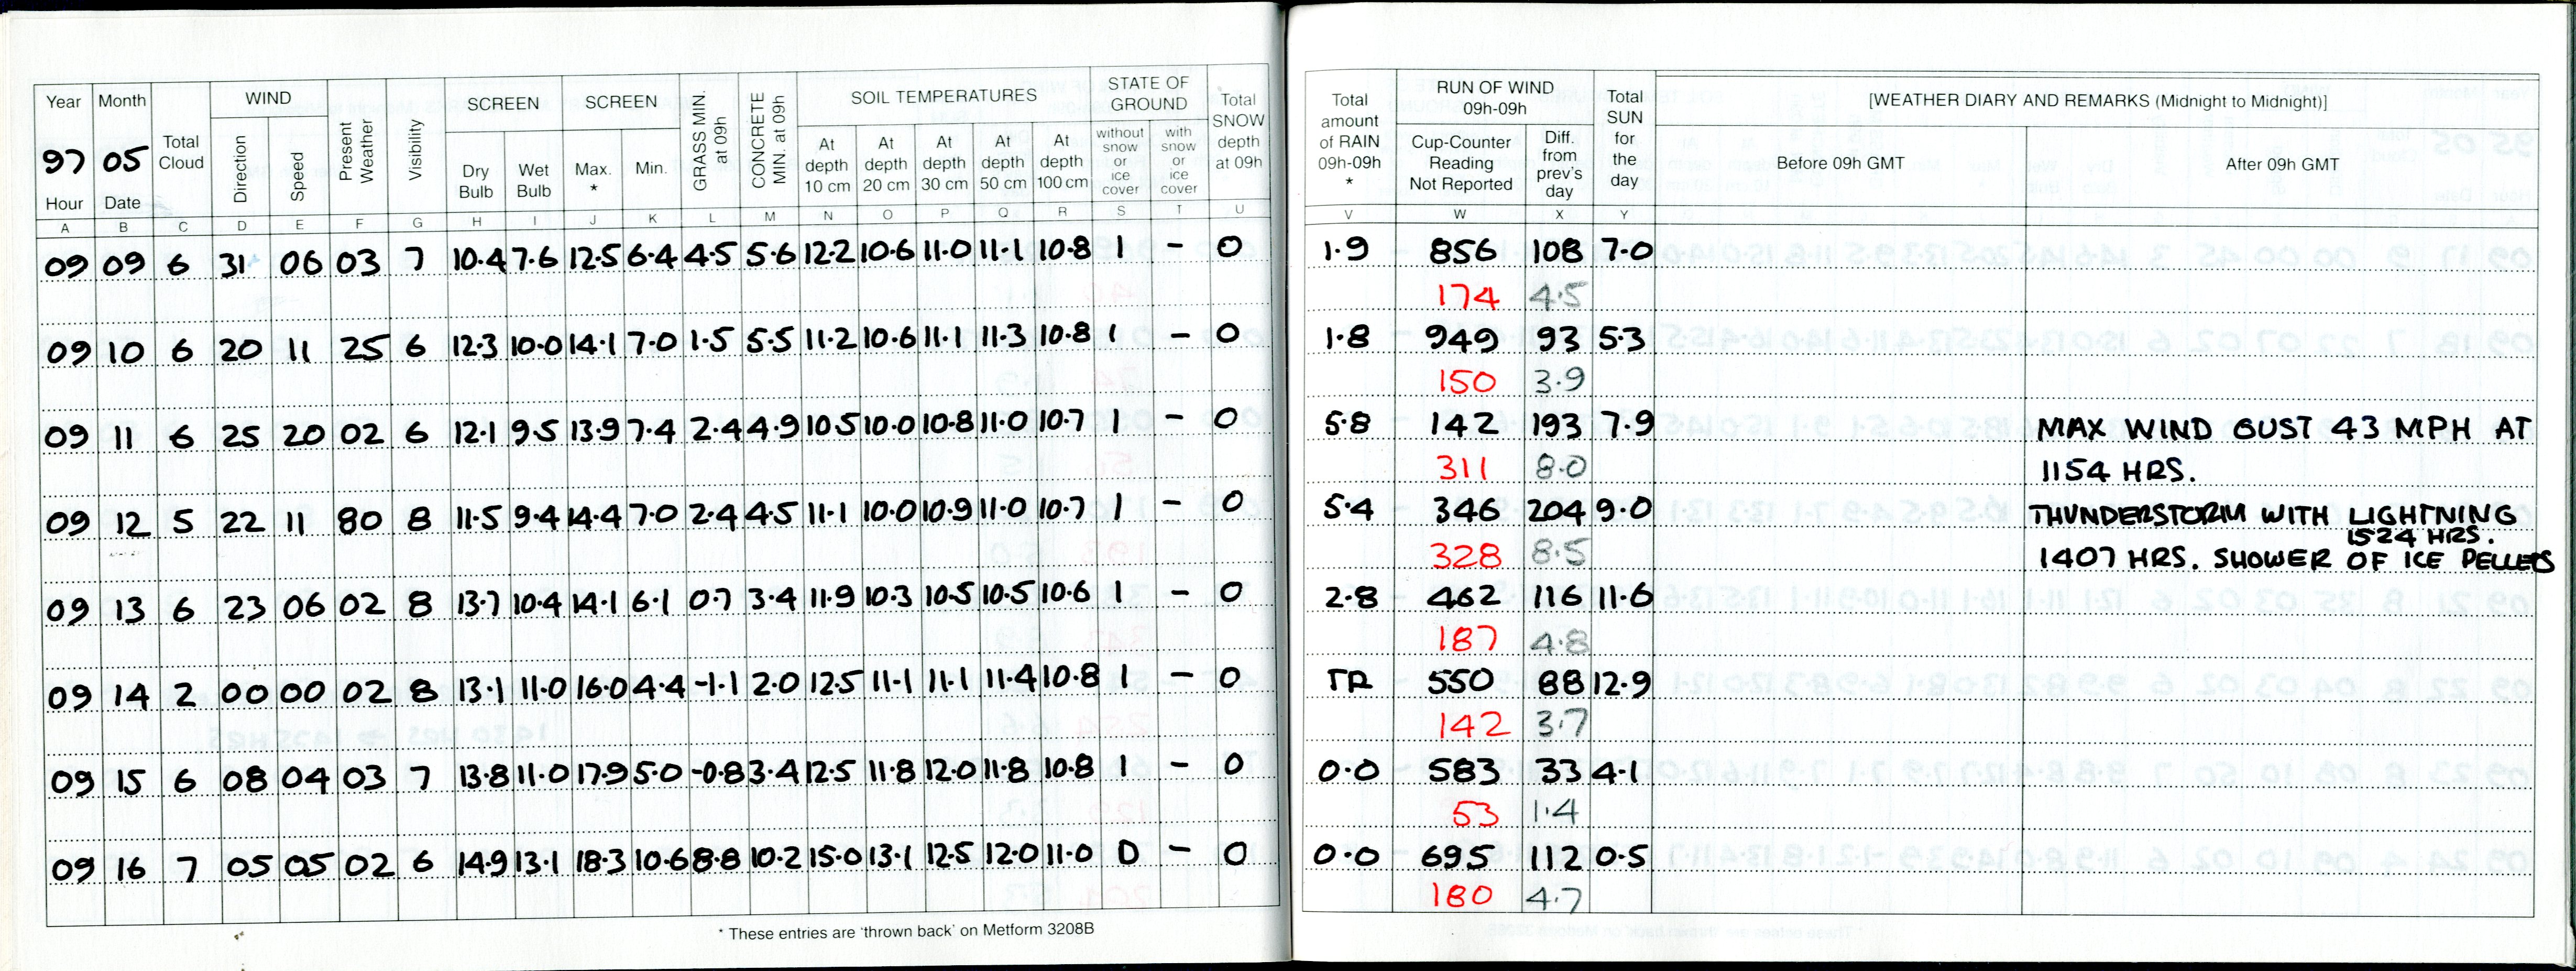 Year Month WIND SCREEN SCREEN SOIL TEMPERATURES STATE OF GROUND
97 05 Total Cloud Direction Speed Present Weather Visibility Dry Bulb Wet Bulb Max. * Min. GRASS MIN. at 09h CONCRETE MIN. at 09h At depth 10 cm At depth 20 cm At depth 30 cm At depth 50 cm At depth 100 cm without snow or ice cover with snow or ice cover Total SNOW depth at 09h
Hour Date
A B C D E F G H I J K L M N O P Q R S T U
09 09 6 31 06 03 7 10.4 7.6 12.5 6.4 4.5 5.6 12.2 10.6 11.0 11.1 10.8 1 - 0
09 10 6 20 11 25 6 12.3 10.0 14.1 7.0 1.5 5.5 11.2 10.6 11.1 11.3 10.8 1 - 0
09 11 6 25 20 02 6 12.1 9.5 13.9 7.4 2.4 4.9 10.5 10.0 10.8 11.0 10.7 1 - 0
09 12 5 22 11 80 8 11.5 9.4 14.4 7.0 2.4 4.5 11.1 10.0 10.9 11.0 10.7 1 - 0
09 13 6 23 06 02 8 13.7 10.4 14.1 6.1 0.7 3.4 11.9 10.3 10.5 10.5 10.6 1 - 0
09 14 2 00 00 02 8 13.1 11.0 16.0 4.4 -1.1 2.0 12.5 11.1 11.1 11.4 10.8 1 - 0
09 15 6 08 04 03 7 13.8 11.0 17.9 5.0 -0.8 3.4 12.5 11.8 12.0 11.8 10.8 1 - 0
09 16 7 05 05 02 6 14.9 13.1 18.3 10.6 8.8 10.2 15.0 13.1 12.5 12.0 11.0 0 - 0
* These entries are 'thrown back' on Metform 3208B
Total amount of RAIN 09h-09h * RUN OF WIND 09h-09h Total SUN for the day [WEATHER DIARY AND REMARKS (Midnight to Midnight)]
Cup-Counter Reading Not Reported Diff. from prev's day Before 09h GMT After 09h GMT
V W X Y
1.9 856 108 7.0
174 4.5
1.8 949 93 5.3
150 3.9
5.8 142 193 7.9 MAX WIND GUST 43 MPH AT
311 8.0 1154 HRS.
5.4 346 204 9.0 THUNDERSTORM WITH LIGHTNING
1524 HRS.
328 8.5 1407 HRS. SHOWER OF ICE PELLETS
2.8 462 116 11.6
187 4.8
TR 550 88 12.9
142 3.7
0.0 583 33 4.1
53 1.4
0.0 695 112 0.5
180 4.7